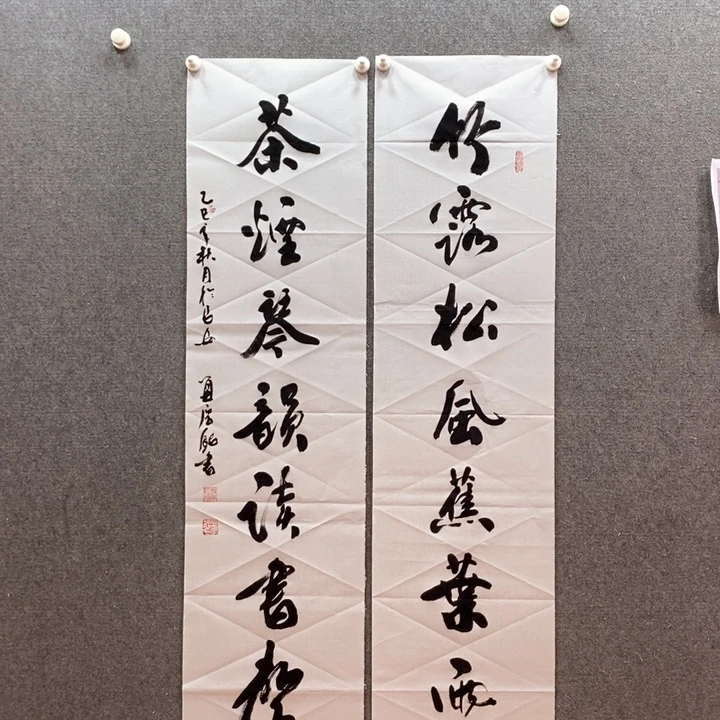 竹露松風蕉葉雨
茶煙琴韻读書聲
乙巳年秋月於
書